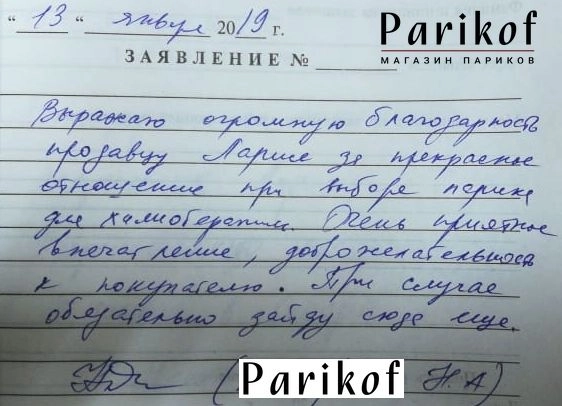 "13" января 2019 г.
Parikof
МАГАЗИН ПАРИКОВ
ЗАЯВЛЕНИЕ №
Выражаю огромную благодарность
продавцу Ларисе за прекрасное
отношение при выборе парика
для химиотерапии. Очень приятное
впечатление, доброжелательность
к покупателю. При случае
обязательно зайду сюда еще.
( Parikof Н.А)